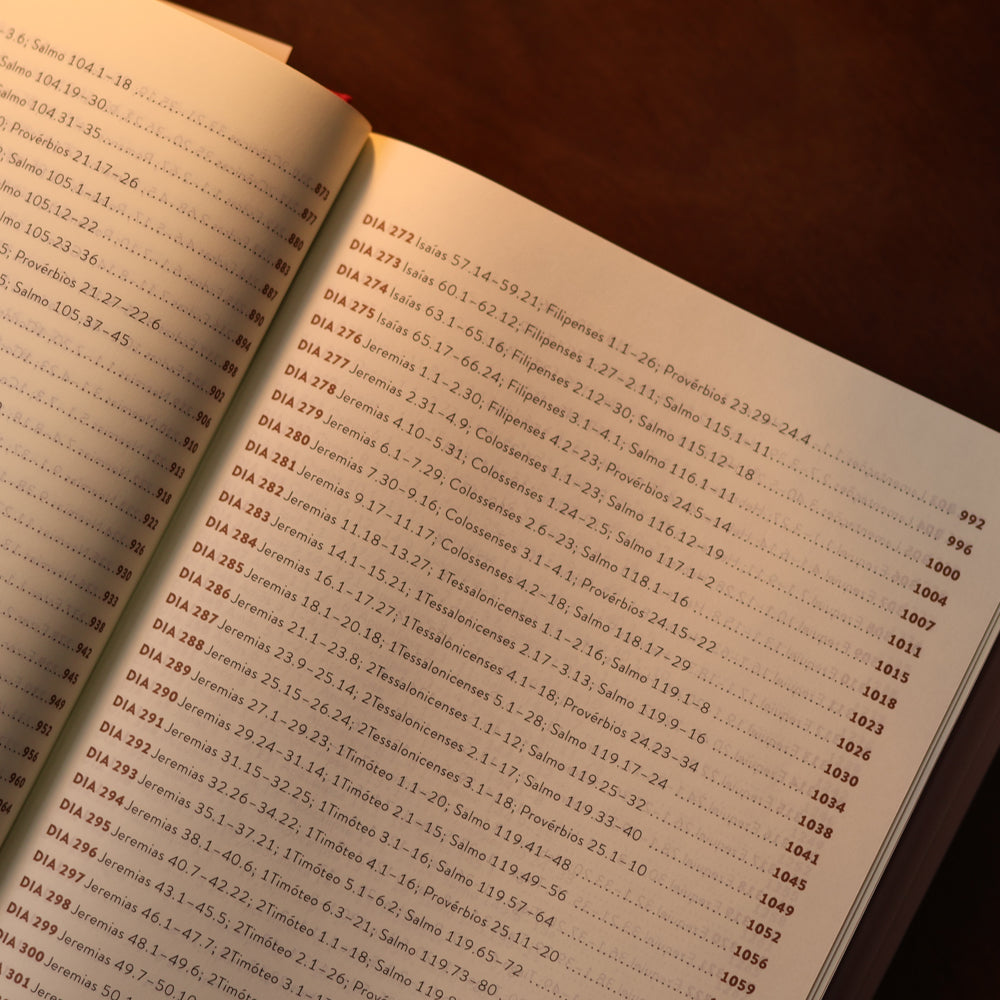 3.6; Salmo 104.1–18 ... 873
Salmo 104.19–30 ... 877
Salmo 104.31–35 ... 880
Provérbios 21.17–26 ... 883
Salmo 105.1–11 ... 887
105.12–22 ... 890
105.23–36 ... 894
Provérbios 21.27–22.6 ... 898
Salmo 105.37–45 ... 902
906
910
913
918
922
926
930
933
938
942
945
949
952
956
960
DIA 272 Isaías 57.14–59.21; Filipenses 1.1–26; Provérbios 23.29–24.4 ... 992
DIA 273 Isaías 60.1–62.12; Filipenses 1.27–2.11; Salmo 115.1–11 ... 996
DIA 274 Isaías 63.1–65.16; Filipenses 2.12–30; Salmo 115.12–18 ... 1000
DIA 275 Isaías 65.17–66.24; Filipenses 3.1–4.1; Salmo 116.1–11 ... 1004
DIA 276 Jeremias 1.1–2.30; Filipenses 4.2–23; Provérbios 24.5–14 ... 1007
DIA 277 Jeremias 2.31–4.9; Colossenses 1.1–23; Salmo 116.12–19 ... 1011
DIA 278 Jeremias 4.10–5.31; Colossenses 1.24–2.5; Salmo 117.1–2 ... 1015
DIA 279 Jeremias 6.1–7.29; Colossenses 2.6–23; Salmo 118.1–16 ... 1018
DIA 280 Jeremias 7.30–9.16; Colossenses 3.1–4.1; Provérbios 24.15–22 ... 1023
DIA 281 Jeremias 9.17–11.17; Colossenses 4.2–18; Salmo 118.17–29 ... 1026
DIA 282 Jeremias 11.18–13.27; 1Tessalonicenses 1.1–2.16; Salmo 119.1–8 ... 1030
DIA 283 Jeremias 14.1–15.21; 1Tessalonicenses 2.17–3.13; Salmo 119.9–16 ... 1034
DIA 284 Jeremias 16.1–17.27; 1Tessalonicenses 4.1–18; Provérbios 24.23–34 ... 1038
DIA 285 Jeremias 18.1–20.18; 1Tessalonicenses 5.1–28; Salmo 119.17–24 ... 1041
DIA 286 Jeremias 21.1–23.8; 2Tessalonicenses 1.1–12; Salmo 119.25–32 ... 1045
DIA 287 Jeremias 23.9–25.14; 2Tessalonicenses 2.1–17; Salmo 119.33–40 ... 1049
DIA 288 Jeremias 25.15–26.24; 2Tessalonicenses 3.1–18; Provérbios 25.1–10 ... 1052
DIA 289 Jeremias 27.1–29.23; 1Timóteo 1.1–20; Salmo 119.41–48 ... 1056
DIA 290 Jeremias 29.24–31.14; 1Timóteo 2.1–15; Salmo 119.49–56 ... 1059
DIA 291 Jeremias 31.15–32.25; 1Timóteo 3.1–16; Salmo 119.57–64 ...
DIA 292 Jeremias 32.26–34.22; 1Timóteo 4.1–16; Provérbios 25.11–20 ...
DIA 293 Jeremias 35.1–37.21; 1Timóteo 5.1–6.2; Salmo 119.65–72 ...
DIA 294 Jeremias 38.1–40.6; 1Timóteo 6.3–21; Salmo 119.73–80
DIA 295 Jeremias 40.7–42.22; 2Timóteo 1.1–18; Salmo
DIA 296 Jeremias 43.1–45.5; 2Timóteo 2.1–26;
DIA 297 Jeremias 46.1–47.7; 2Timóteo 3.1–
DIA 298 Jeremias 48.1–49.6;
DIA 299 Jeremias 49.7–50.10
DIA 300 Jeremias
301